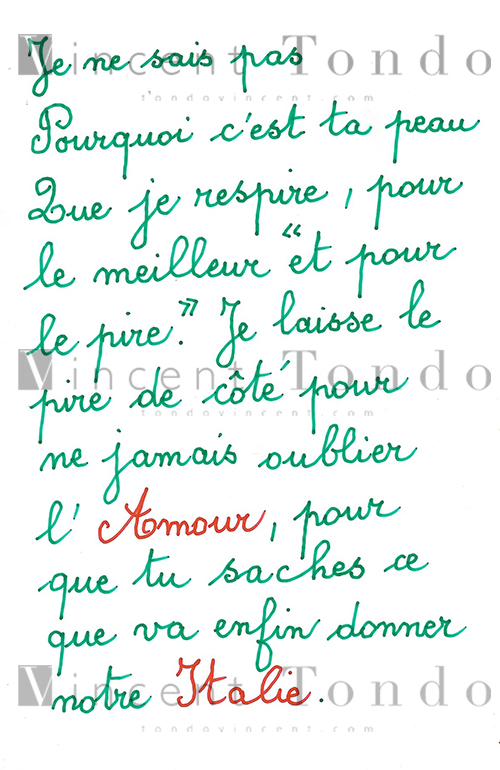 Vincent Tondo
tondovincent.com
Je ne sais pas
Pourquoi c'est ta peau
Que je respire, pour
le meilleur "et pour
le pire." Je laisse le
Vincent Tondo
pire de côté pour
tondovincent.com
ne jamais oublier
l'Amour, pour
que tu saches ce
que va enfin donner
Vincent Tondo
notre Italie.
tondovincent.com